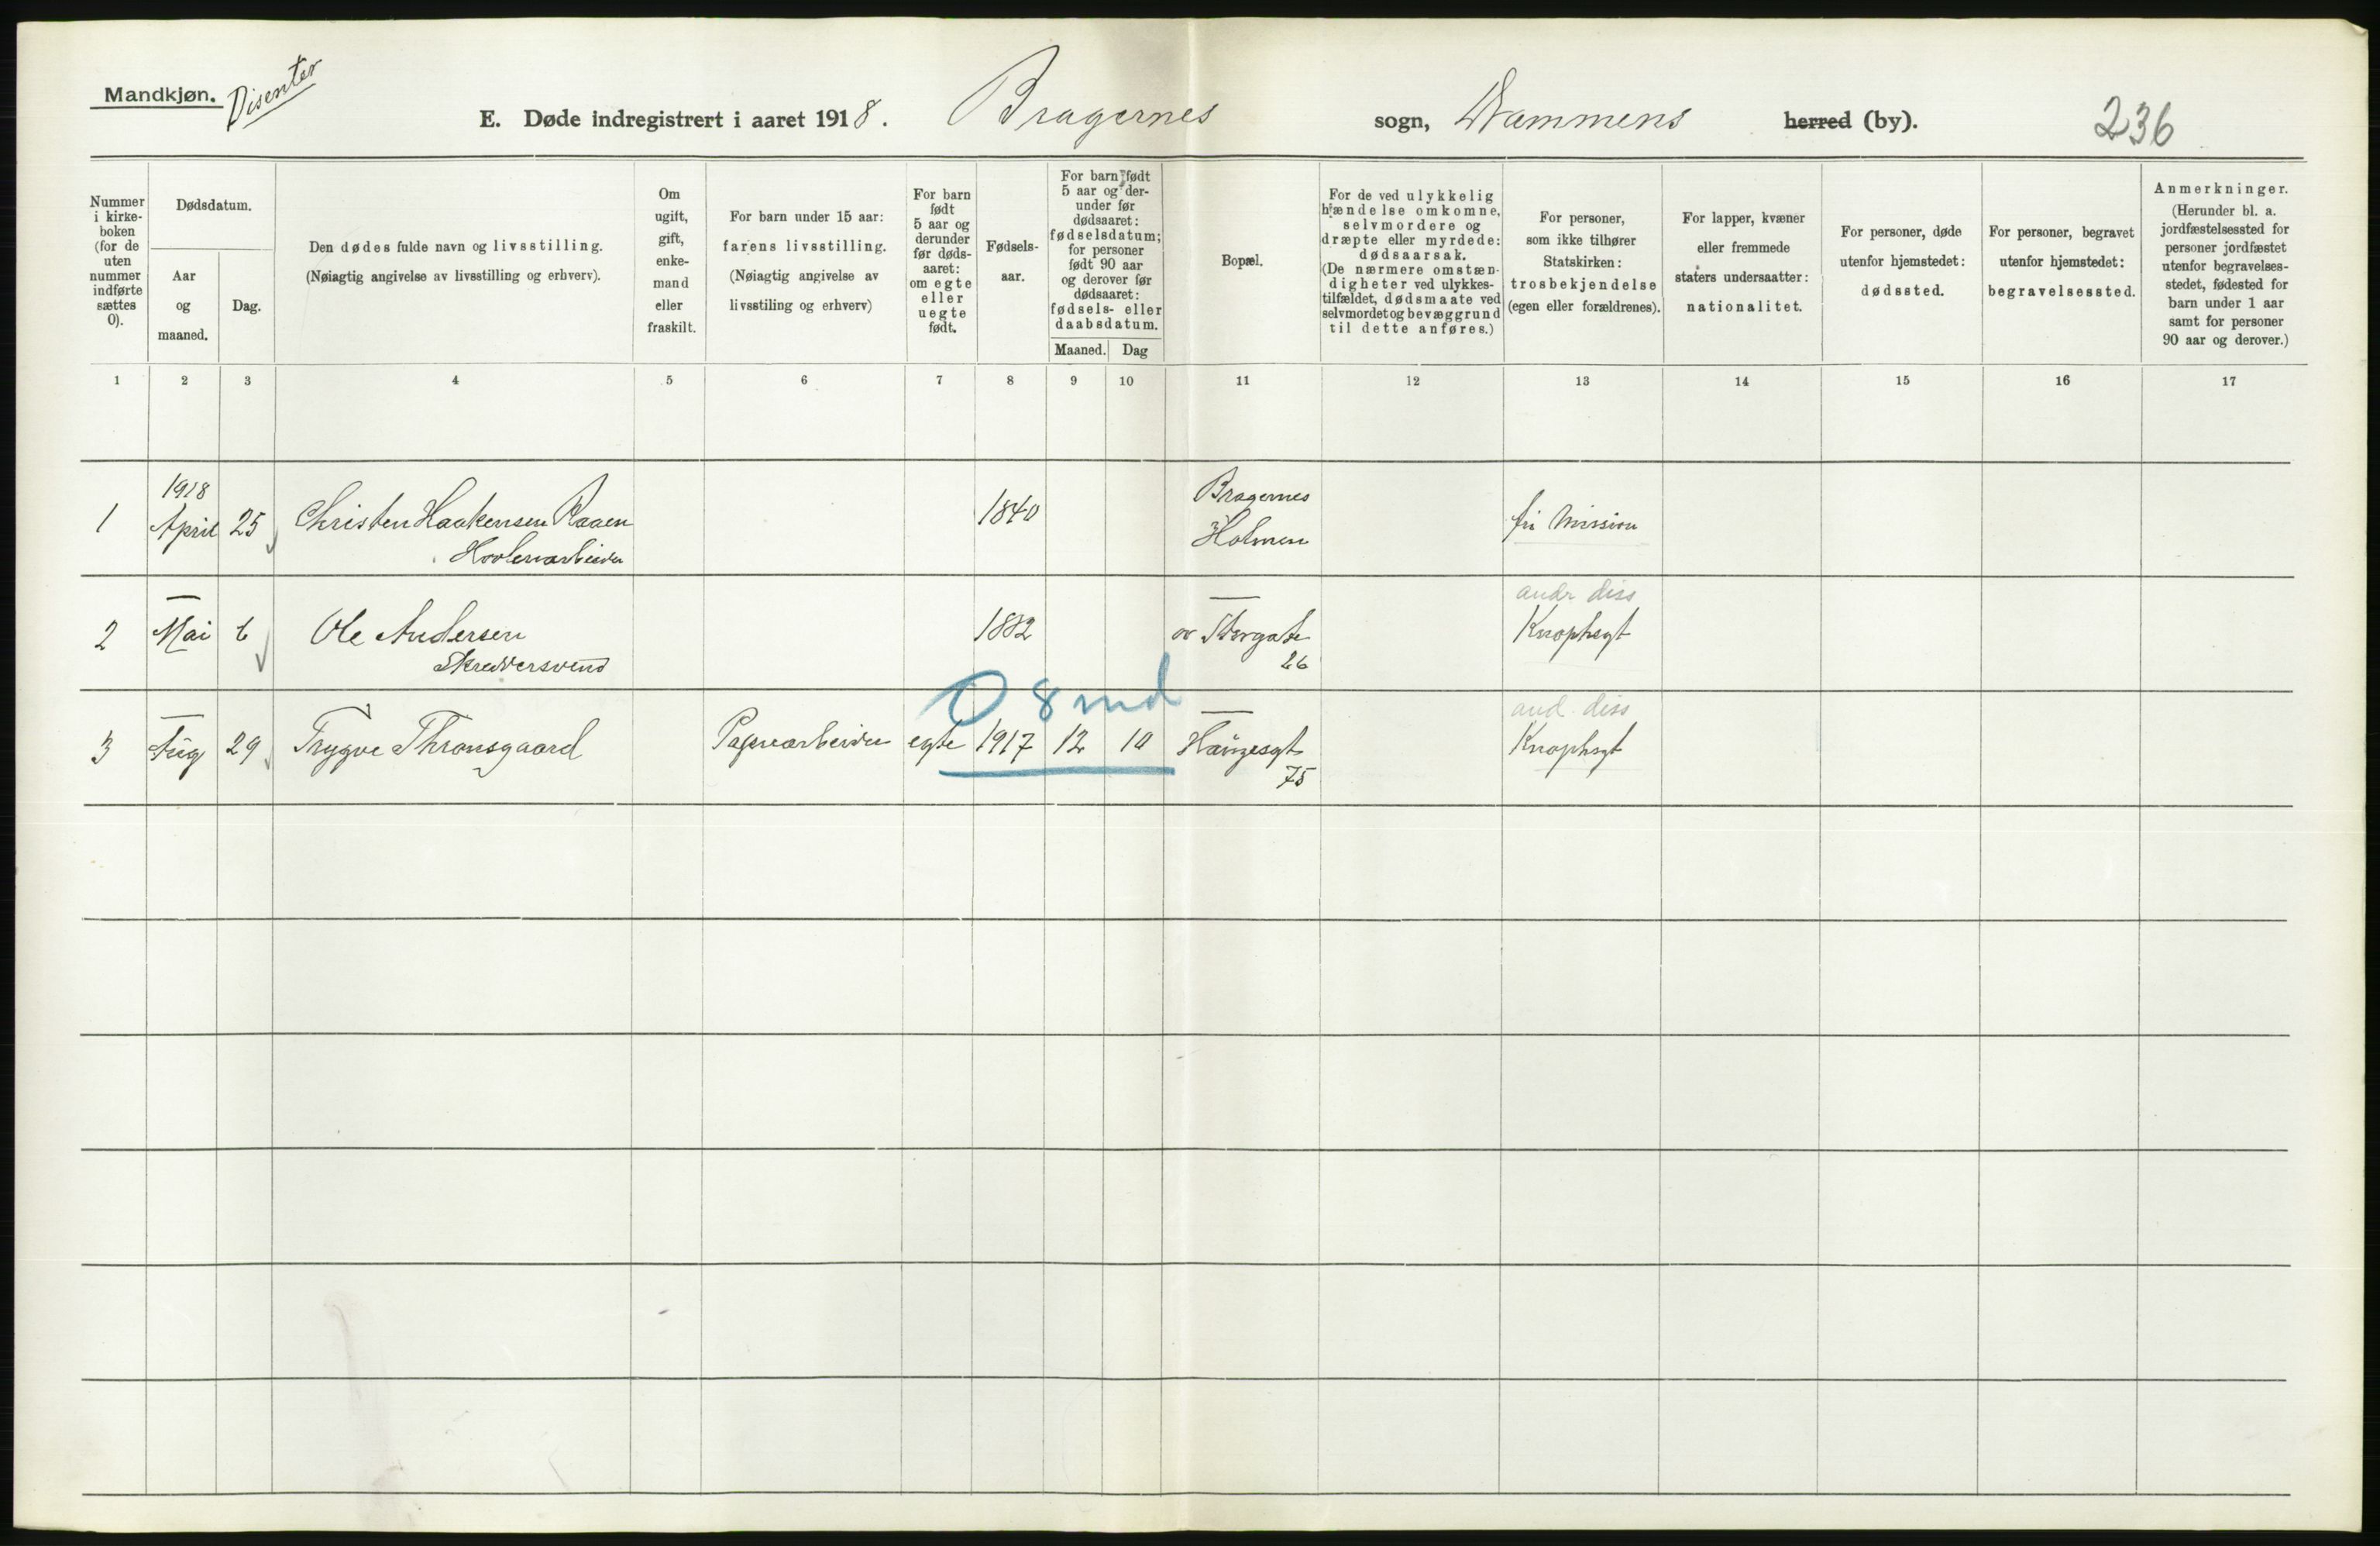 Mandkjøn. Disenter
E. Døde indregistrert i aaret 1918. Bragernes sogn, Drammens herred (by). 236
Nummer i kirke- boken (for de uten nummer indførte sættes 0).
Dødsdatum.
Aar og maaned.
Dag.
Den dødes fulde navn og livsstilling.
(Nøiagtig angivelse av livsstilling og erhverv).
Om ugift, gift, enke- mand eller fraskilt.
For barn under 15 aar:
farens livsstilling.
(Nøiagtig angivelse av
livsstiling og erhverv)
For barn født 5 aar og derunder før døds- aaret: om egte eller uegte født.
Fødsels- aar.
For barn født 5 aar og der- under før dødsaaret: fødselsdatum; for personer født 90 aar og derover før dødsaaret: fødsels- eller daabsdatum.
Maaned. Dag
Bopæl.
For de ved ulykkelig hændelse omkomne, selvmordere og dræpte eller myrdede: dødsaarsak. (De nærmere omstæn- digheter ved ulykkes- tilfældet, dødsmaate ved selvmordet og bevæggrund til dette anføres.)
For personer, som ikke tilhører Statskirken: trosbekjendelse (egen eller forældrenes).
For lapper, kvæner eller fremmede staters undersaatter: nationalitet.
For personer, døde utenfor hjemstedet: dødssted.
For personer, begravet utenfor hjemstedet: begravelsessted.
Anmerkninger.
(Herunder bl. a. jordfæstelsessted for personer jordfæstet utenfor begravelses- stedet, fødested for barn under 1 aar samt for personer 90 aar og derover.)
1 2 3 4 5 6 7 8 9 10 11 12 13 14 15 16 17
1918 Bragernes
1 April 25 Christen Haakensen Raaen 1840 Holmen fri Mission
— — andr diss
2 Mai 6 Ole Andersen 1882 ov Storgate Knophsgt
Skreddersvend 26
0 8 md
— — and. diss
3 Aug 29 Trygve Thronsgaard Papirarbeider egte 1917 12 10 Haugesgt Knophsgt
75